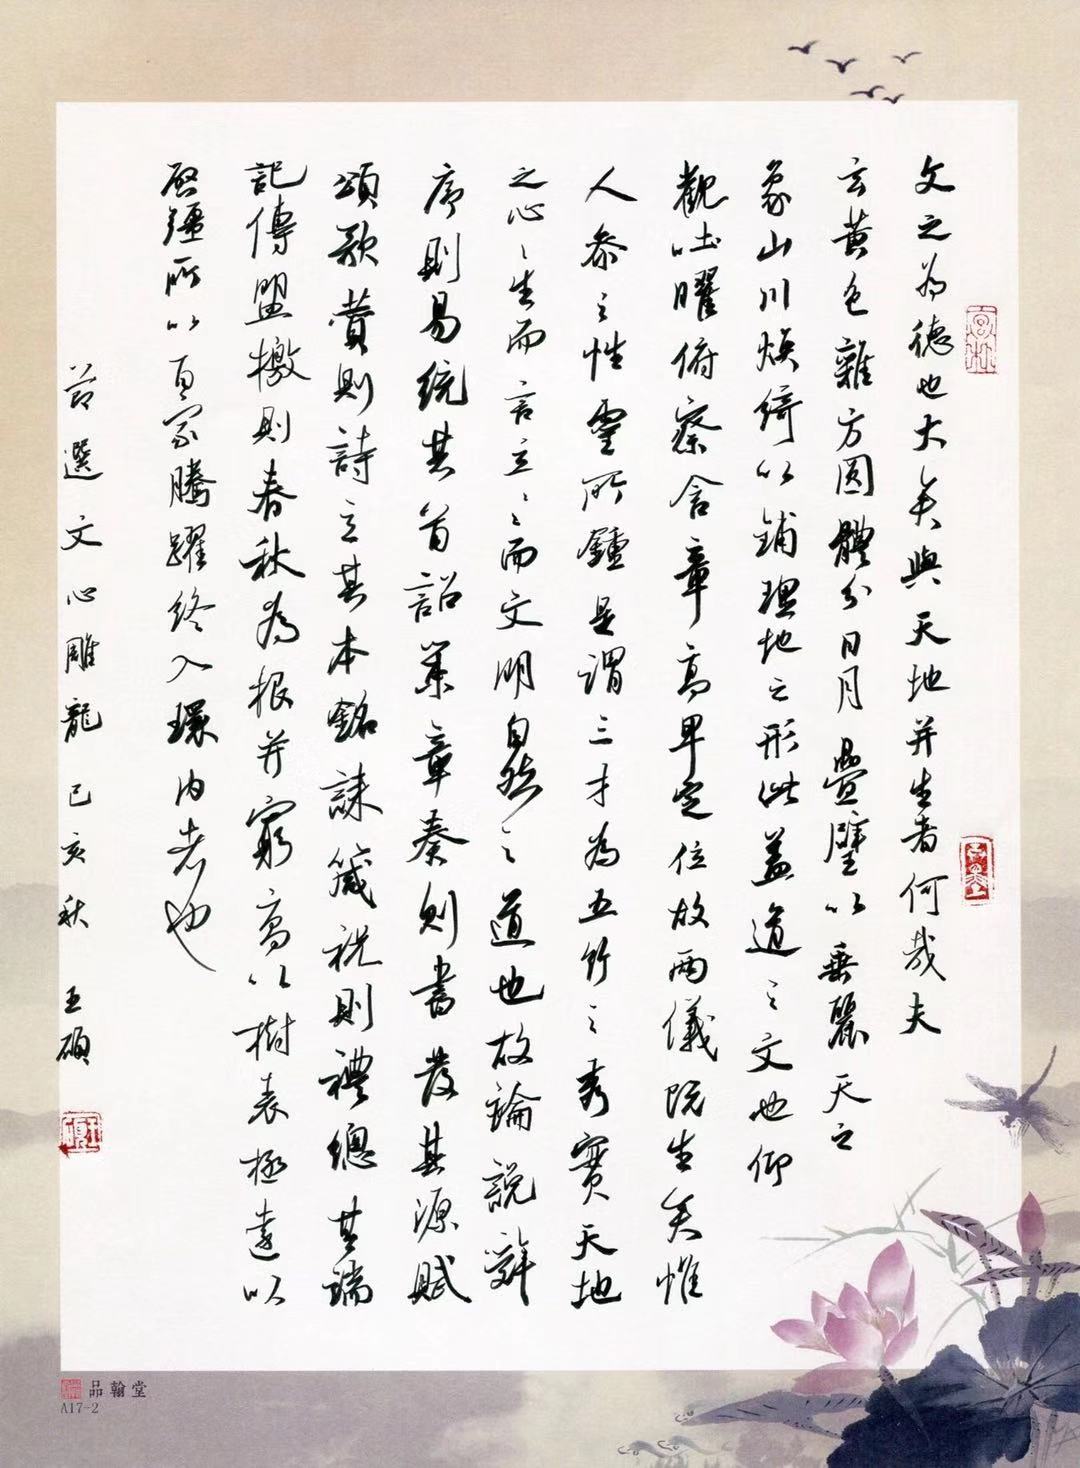 文之为德也大矣與天地并生者何哉夫
玄黄色雜方圆體分日月疊璧以垂麗天之
象山川焕绮以铺理地之形此盖道之文也仰
觀吐曜俯察含章高卑定位故兩儀既生矣惟
人参之性靈所鍾是謂三才为五行之秀實天地
之心心生而言立言立而文明自然之道也故論説辞
序則易统其首詔策章奏则書发其源赋
頌歌赞則詩立其本銘誄箴祝則禮總其端
記傳盟檄則春秋为根并窮高以樹表極遠以
啟疆所以百家騰躍终入環内者也
节選文心雕龍己亥秋王碩
品翰堂
A17-2